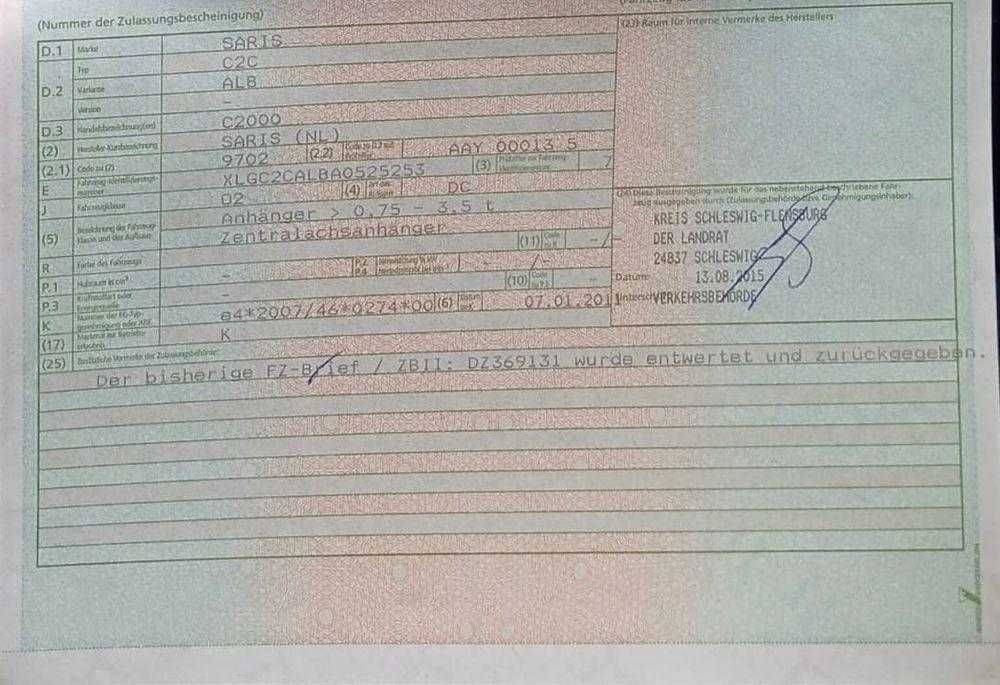 (Nummer der Zulassungsbescheinigung)
(23) Raum für interne Vermerke des Herstellers
D.1 Marke SARIS
D.2 Typ C2C
Variante ALB
Version –
D.3 Handelsbezeichnung(en) C2000
(2) Hersteller-Kurzbezeichnung SARIS (NL)
(2.1) Code zu (2) 9702 (2.2) AAY 00013 5
E Fahrzeug-Identifizierungsnummer XLGC2CALBA0525253 (3) 7
J Fahrzeugklasse O2 (4) DC
(5) Bezeichnung der Fahrzeugklasse und des Aufbaus Anhänger > 0,75 – 3,5 t
Zentralachsanhänger
R Farbe des Fahrzeugs – (11) Code – / –
P.1 Hubraum in cm³ – P.2 P.4 – / –
P.3 Kraftstoffart oder Energiequelle – (10) Code zu P.3 –
K Nummer der EG-Typgenehmigung oder ABE e4*2007/46*0274*00 (6) 07.01.2011
(17) Merkmal zur Betriebserlaubnis K
(24) Diese Bescheinigung wurde für das nebenstehend beschriebene Fahrzeug ausgegeben durch (Zulassungsbehörde bzw. Genehmigungsinhaber):
KREIS SCHLESWIG-FLENSBURG
DER LANDRAT
24837 SCHLESWIG
Datum: 13.08.2015
Unterschrift VERKEHRSBEHÖRDE
(25) Zusätzliche Vermerke der Zulassungsbehörde:
Der bisherige FZ-Brief / ZBII: DZ369131 wurde entwertet und zurückgegeben.